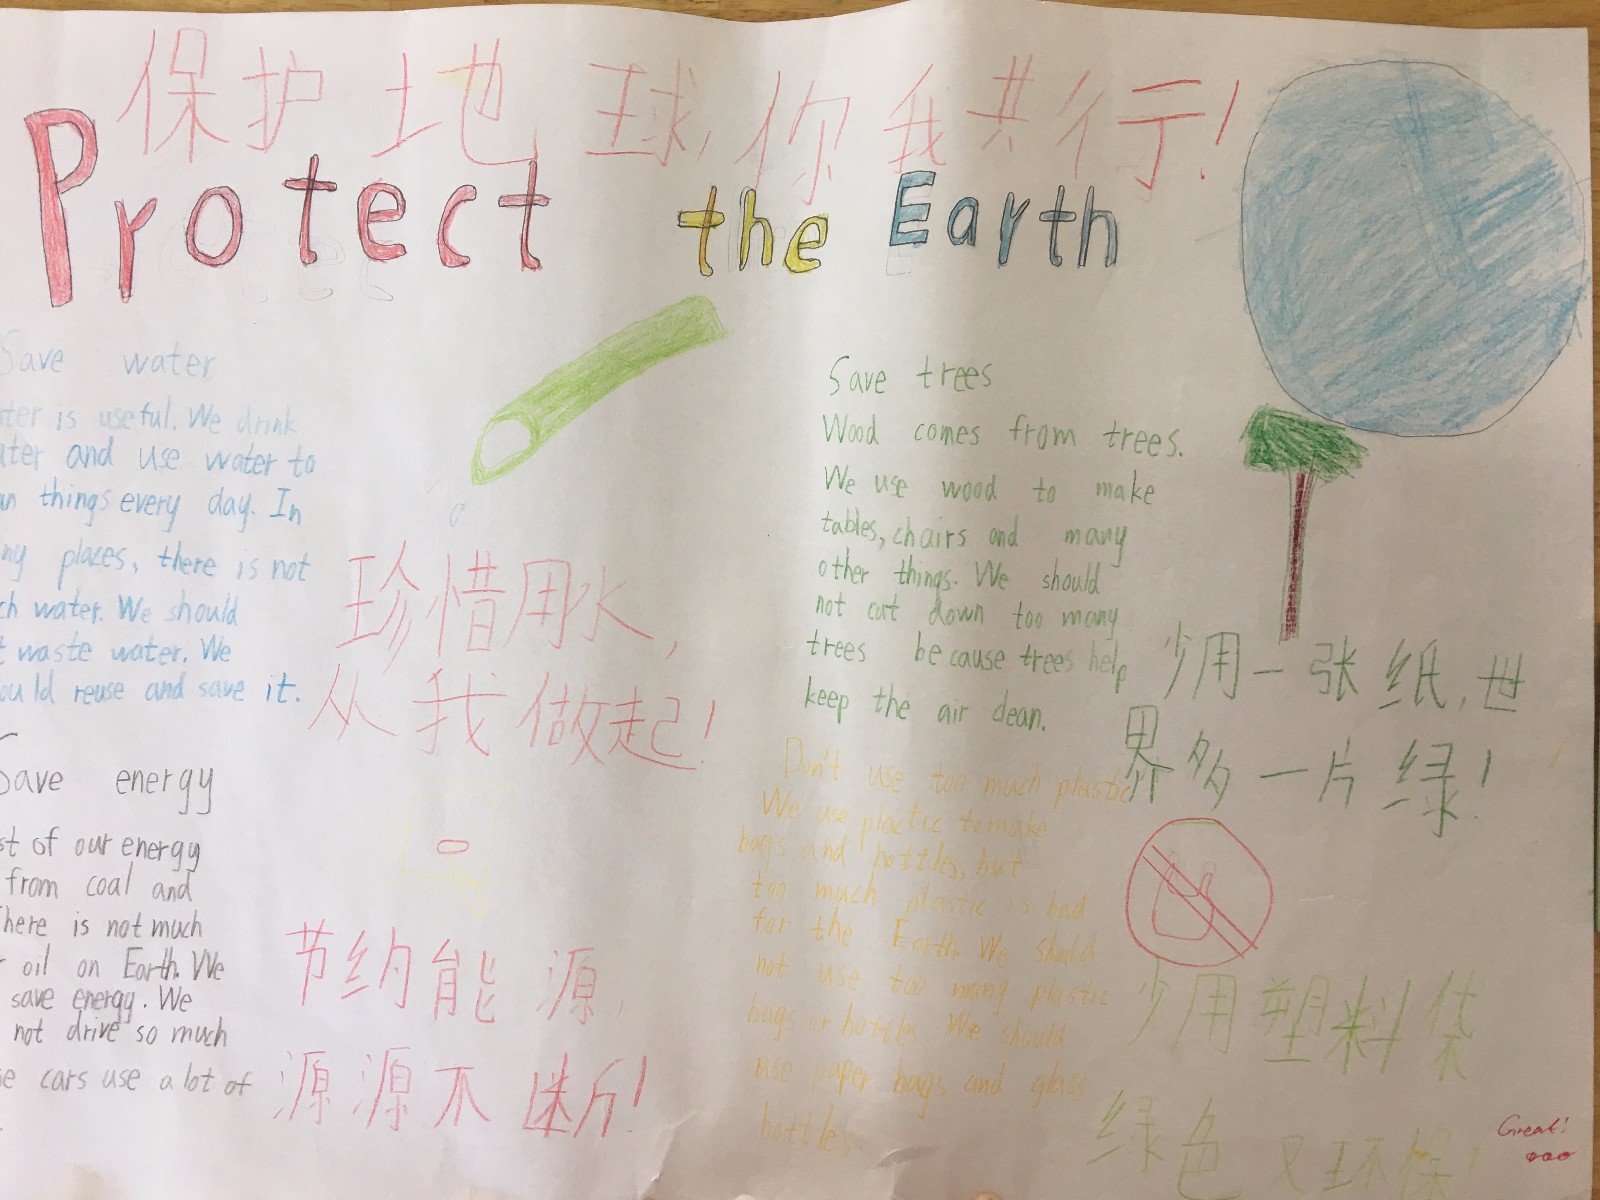 保护地球,你我共行!
Protect the Earth
Save water
ter is useful. We drink
ater and use water to
an things every day. In
ny places, there is not
ch water. We should
t waste water. We
ould reuse and save it.
珍惜用水,
从我做起!
Save energy
st of our energy
from coal and
There is not much
r oil on Earth. We
save energy. We
not drive so much
se cars use a lot of
节约能源,
源源不断!
Save trees
Wood comes from trees.
We use wood to make
tables, chairs and many
other things. We should
not cut down too many
trees because trees help
keep the air clean.
少用一张纸,世
界多一片绿!
Don't use too much plastic
We use plactic to make
bags and bottles, but
too much plastic is bad
for the Earth. We should
not use too many plastic
bags or bottles. We should
use paper bags and glass
bottle
少用塑料袋
绿色又环保!
Great!